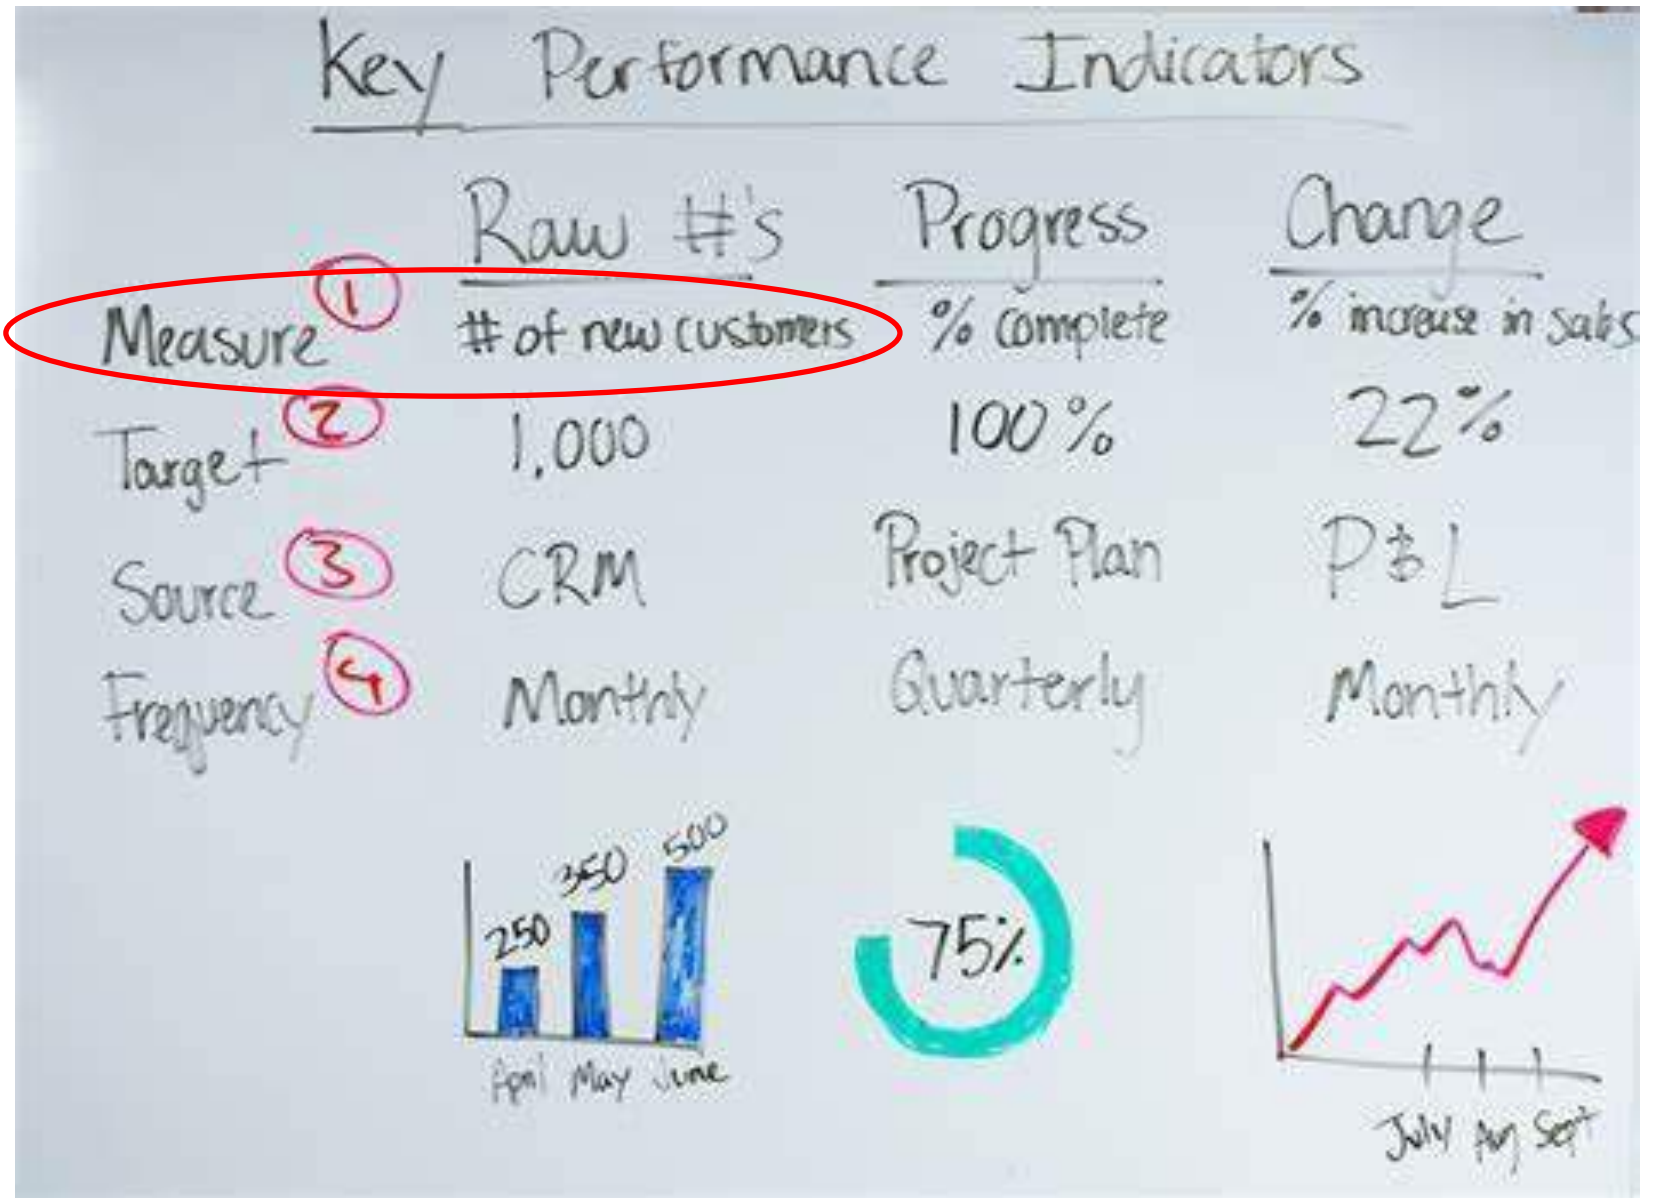 Key Performance Indicators
Raw #'s Progress Change
Measure 1 # of new customers % complete % increase in sales
Target 2 1,000 100% 22%
Source 3 CRM Project Plan P & L
Frequency 4 Monthly Quarterly Monthly
250 350 500
75%
April May June
July Aug Sept